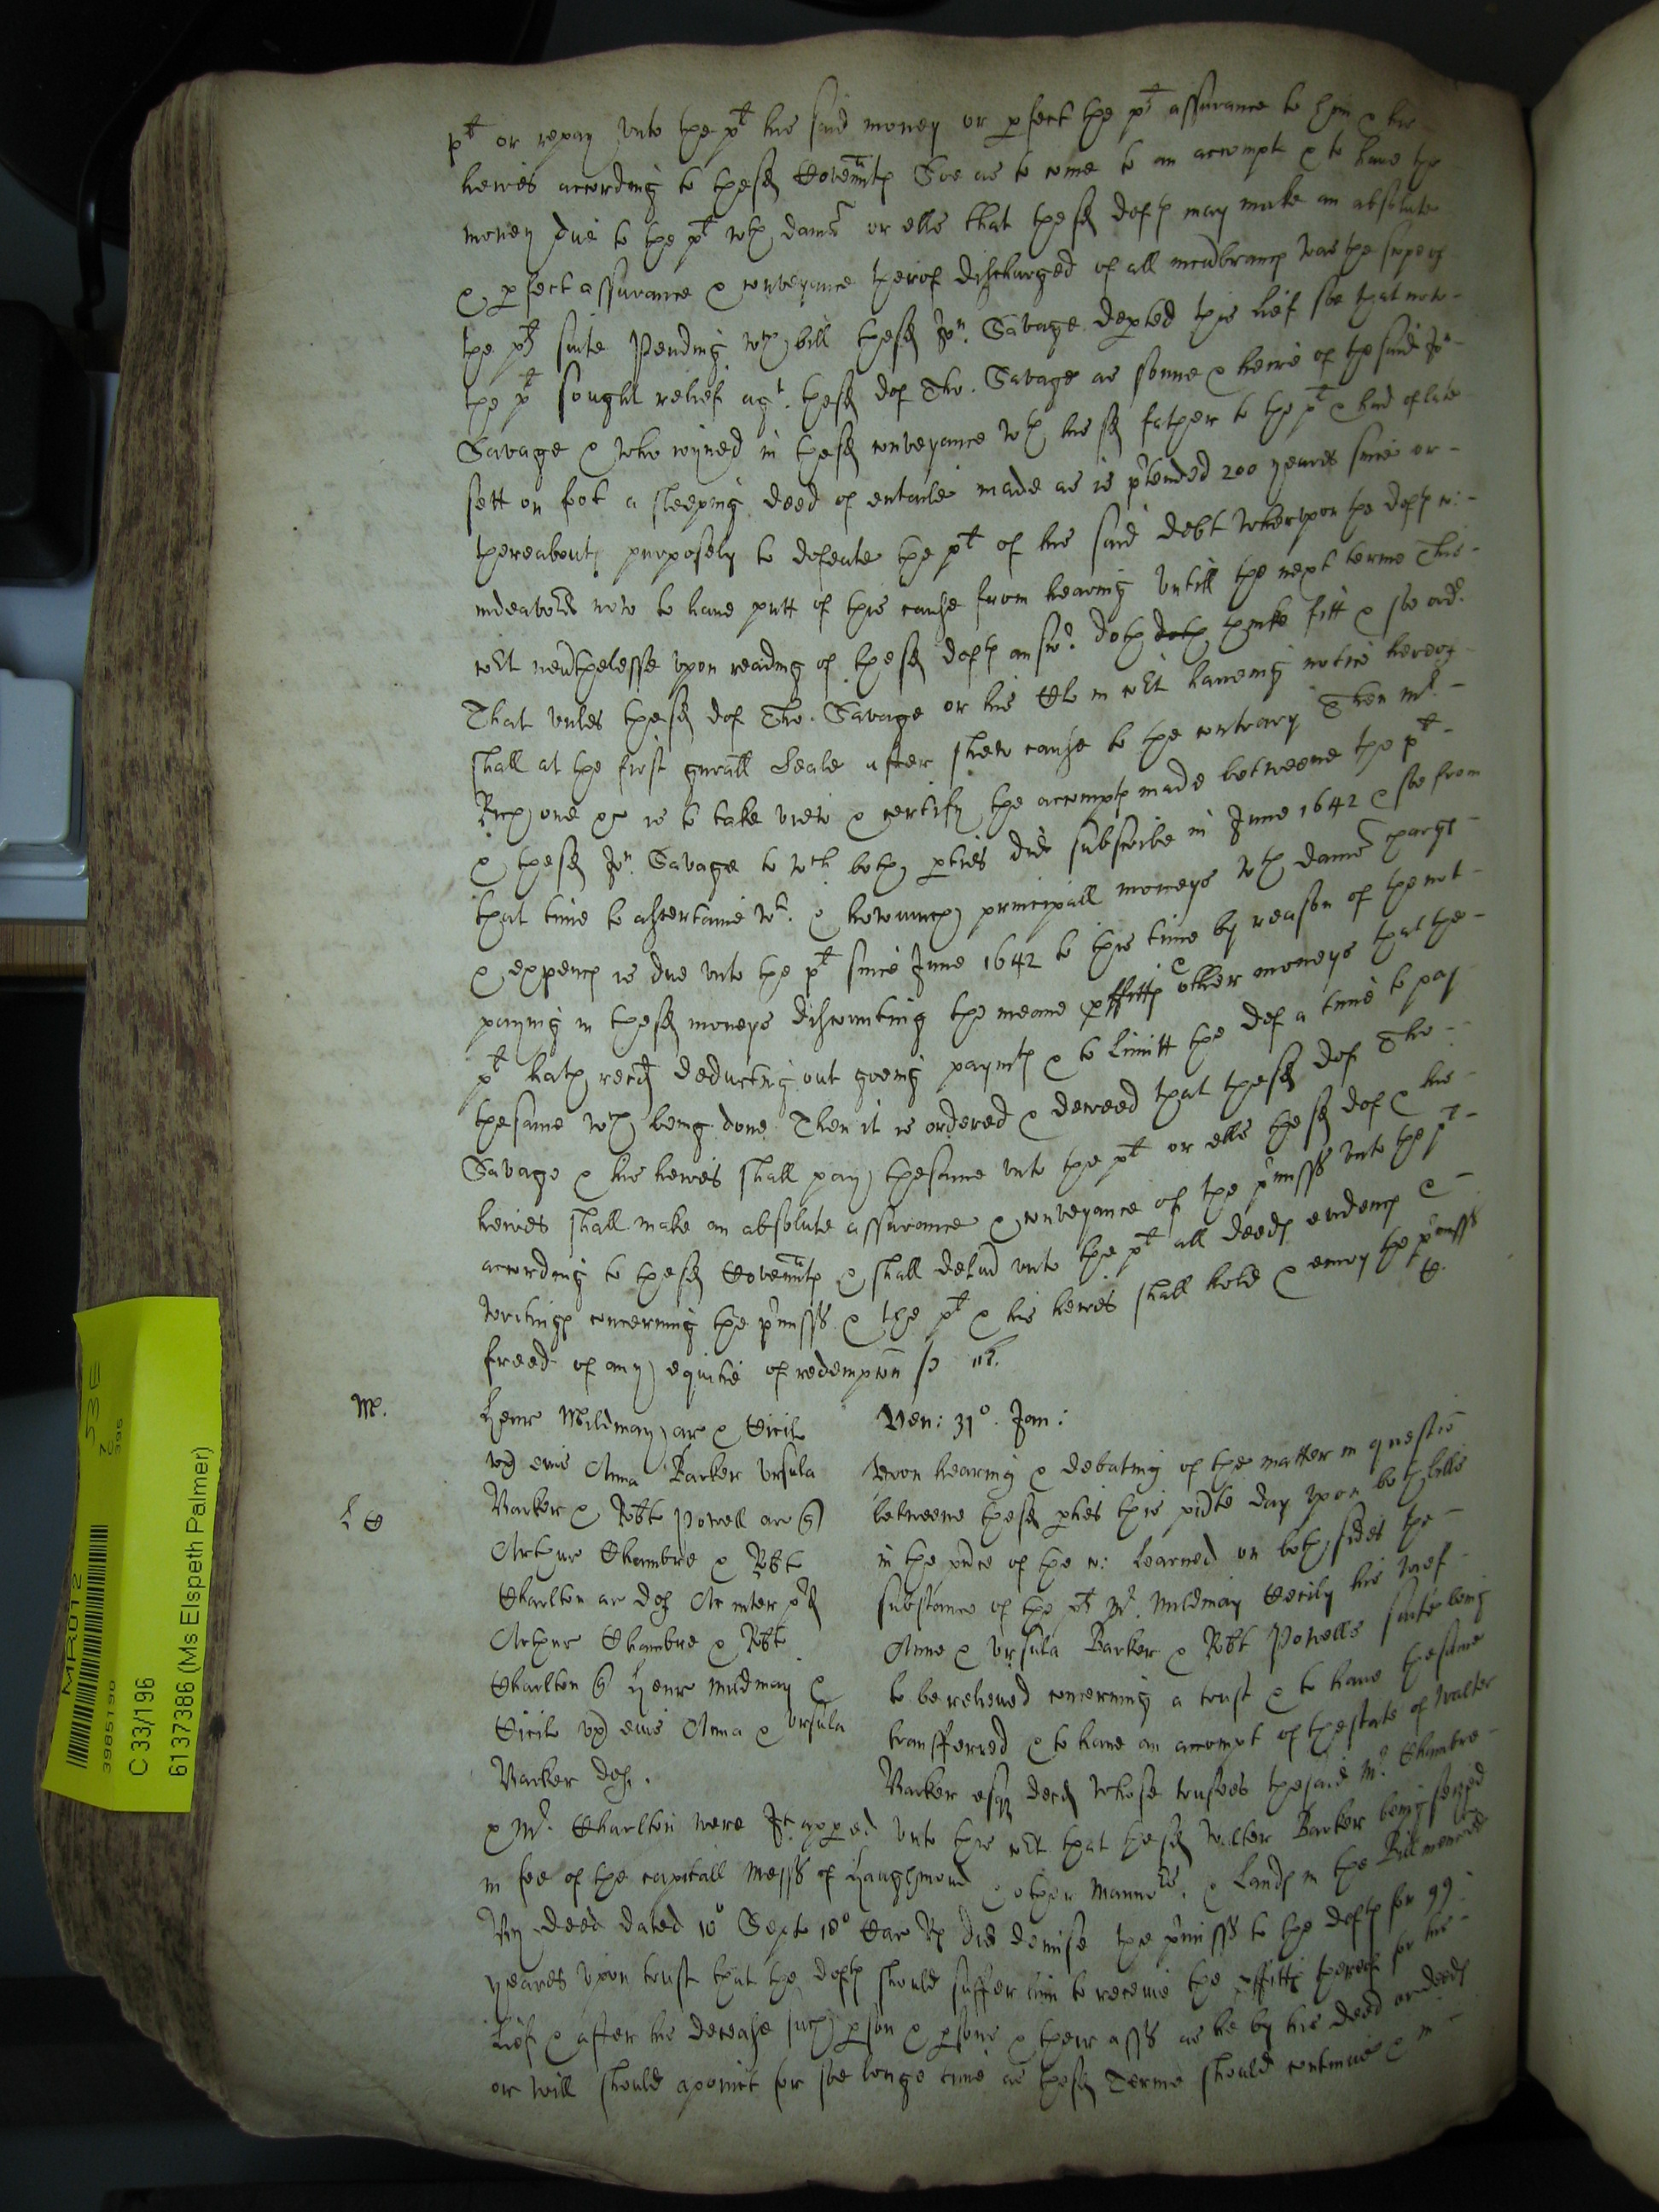 plt or repay unto the plt his said money or pfect the sd assurance to him & his
heires according to the sd Covenntes Soe as to come to an accompt & to have the
money due to the plt wth dams or else that the sd defts may make an absolute
& pfect assurance & conveyance therof discharged of all incumbrances was the scope of
the plts suite Pending wch bill the sd Jon. Savage depted this lief soe that now
the plt sought relief agt. the sd def Tho. Savage as sonne & heire of the said Jon
Savage & who ioyned in the sd conveyance wth his sd father to the plt & had of late
sett on foot a sleeping deed of entaile made as is ptended 200 yeares since or
thereaboutes purposely to defeate the plt of his said debt wherupon the defts co:
indeavored now to have putt of this cause from hearing untill the next terme This
cort nevrthelesse upon reading of the sd defts answr doth doth thinke fitt & soe ord.
That unles the sd def Tho. Savage or his Cl in cort haveing notice hereof
shall at the first genrall Seale after shew cause to the contrary Then mr.
Rich one &c is to take view & certify the accomptes made betweene the plt
& the sd Jon. Savage to wch both pties did subscribe in June 1642 & soe from
that time to ascertaine wt. & howmuch principall moneys wth dams charges
& expences is due unto the plt since June 1642 to this time by reason of the not
paying in the sd moneys discounting the meane pffittes & other moneys that the
plt hath recd deducting out goeing paymtes & to limitt the def a time to pay
the same wch being done Then it is ordered & decreed that the sd def Tho:
Savage & his heires shall pay the same unto the plt or else the sd def & his
heires shall make an absolute assurance & conveyance of the pmisses unto the plt
according to the sd Covenntes & shall delivr unto the plt all deedes evidences &
writinges concerning the pmisses & the plt & his heires shall hold & enioy the pmisses
freed of any equitie of redempcon
M.
Henr Mildmay ar & Cicil
ux eius Anna Barker Ursula
Barker & Robt Powell ar
Arthur Chambre & Robt
Charlton ar def Ac inter pd
Arthur Chambre & Robt
Charlton Henr Mildmay &
Cicil ux eius Anna & Ursula
Barker def.
Ven: 31o. Jan:
Upon hearing & debating of the matter in question
betweene the sd pties this pnte day upon both bills
in the pnce of the co: learned on both sides the
substance of the plts Mr. Mildmay Cecily his wief
Anne & Ursula Barker & Robt Powells suite being
to be relieved concerning a trust & to have the same
transferred & to have an accompt of the state of Walter
Barker esqr decd whose trustees the said Mr Chambre
& Mr. Charlton were It apped unto this cort that the sd Walter Barker being seized
in fee of the capitall Messe of Haughmond & other Mannors. & Landes in the Bill menconed
By deed dated 10o Septe 18o Car Rs did demise the pmisses to the defts for 99
yeares upon trust that the defts should suffer him to receive the pffittes thereof for his
lief & after his decease such pson & psons & their asss as he by his deed or deedes
or will should apoint for soe longe time as the sd Terme should continue & in
MR012
3985190
C 33/196
6137386 (Ms Elspeth Palmer)
53E